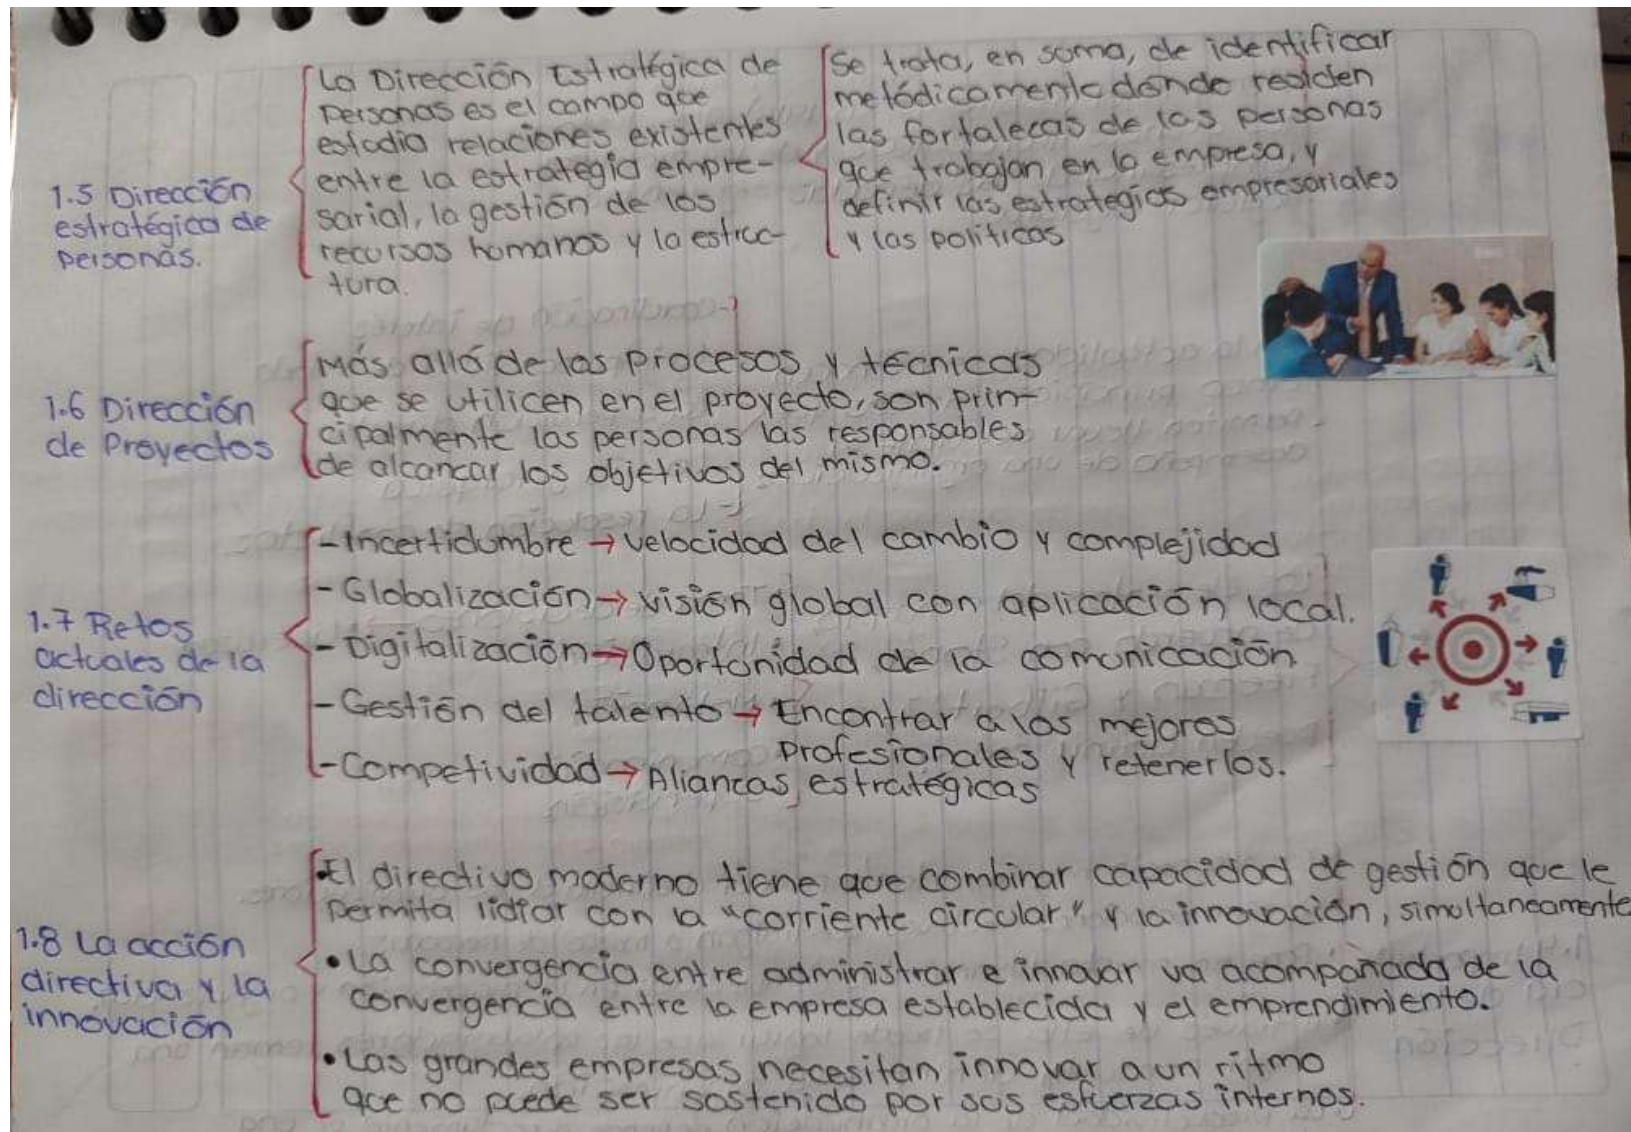 1.5 Dirección
estratégica de
personas.
La Dirección Estratégica de
personas es el campo que
estudia relaciones existentes
entre la estrategia empre-
sarial, la gestión de los
recursos humanos y la estruc-
tura.
Se trata, en soma, de identificar
metódicamente donde residen
las fortalecas de las personas
que trabajan en la empresa, y
definir las estrategias empresariales
y las políticas
1.6 Dirección
de Proyectos
Más allá de los procesos y técnicas
que se utilicen en el proyecto, son prin-
cipalmente las personas las responsables
de alcancar los objetivos del mismo.
1.7 Retos
actuales de la
dirección
- Incertidumbre → velocidad del cambio y complejidad
- Globalización → visión global con aplicación local.
- Digitalización → Oportunidad de la comunicación
- Gestión del talento → Encontrar a los mejores
Profesionales y retenerlos.
- Competividad → Aliancas estratégicas
1.8 La acción
directiva y la
innovación
• El directivo moderno tiene que combinar capacidad de gestión que le
permita lidiar con la "corriente circular" y la innovación, simultaneamente
• La convergencia entre administrar e innovar va acompañada de la
convergencia entre la empresa establecida y el emprendimiento.
• Las grandes empresas necesitan innovar a un ritmo
que no puede ser sostenido por sus esfuerzas internos.